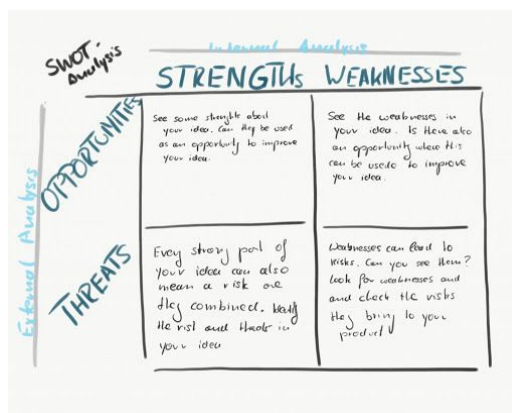 SWOT-
Analysis
Internal Analysis
STRENGTHS WEAKNESSES
External Analysis
OPPORTUNITIES
See some strengths about
your idea. Can they be used
as an opportunity to improve
your idea.
See the weaknesses in
your idea. Is there also
an opportunity where this
can be used to improve
your idea.
THREATS
Every strong part of
your idea can also
mean a risk are
they combined.
the risk and threats in
your idea
Weaknesses can lead to
risks. Can you see them?
look for weaknesses and
and check the risks
they bring to your
product